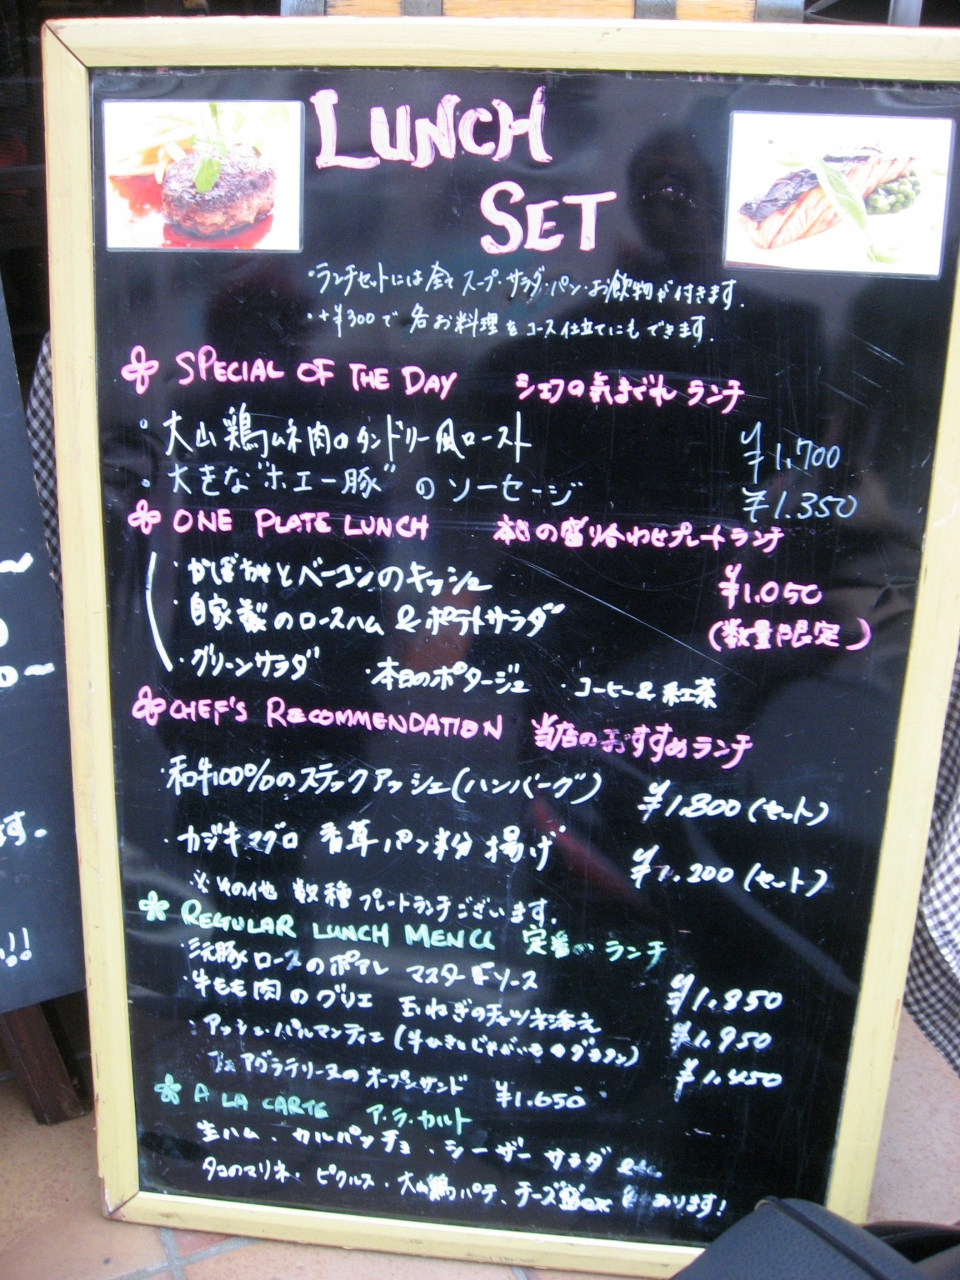 LUNCH
SET
・ランチセットには全て スープ・サラダ・パン・お飲物が付きます.
・+¥300で 各お料理を コース仕立てにもできます.
SPECIAL OF THE DAY シェフの気まぐれ ランチ
・大山鶏ムネ肉のタンドリー風ロースト ¥1,700
・大きな"ホエー豚"のソーセージ ¥1.350
ONE PLATE LUNCH 本日の盛り合わせプレートランチ
・かぼちゃとベーコンのキッシュ ¥1.050
・自家製のロースハム & ポテトサラダ (数量限定)
・グリーンサラダ ・本日のポタージュ ・コーヒー&紅茶
CHEF'S RECOMMENDATION 当店のおすすめランチ
・和牛100%のステックアッシェ(ハンバーグ) ¥1.800(セット)
・カジキマグロ 香草パン粉揚げ ¥1.200(セット)
※その他 数種 プレートランチございます.
REGULAR LUNCH MENU 定番の ランチ
・三元豚ロースのポアレ マスタードソース ¥1.850
・牛もも肉のグリエ 玉ねぎの添え ¥1.950
・アッシェ・パルマンティエ(牛ひきとじゃがいものグラタン) ¥1.450
テリーヌのオープンサンド ¥1.650
A LA CARTE ア・ラ・カルト
生ハム、カルパッチョ、シーザーサラダ etc.
タコのマリネ・ピクルス・大山鶏パテ、チーズ あります!
す.
!!